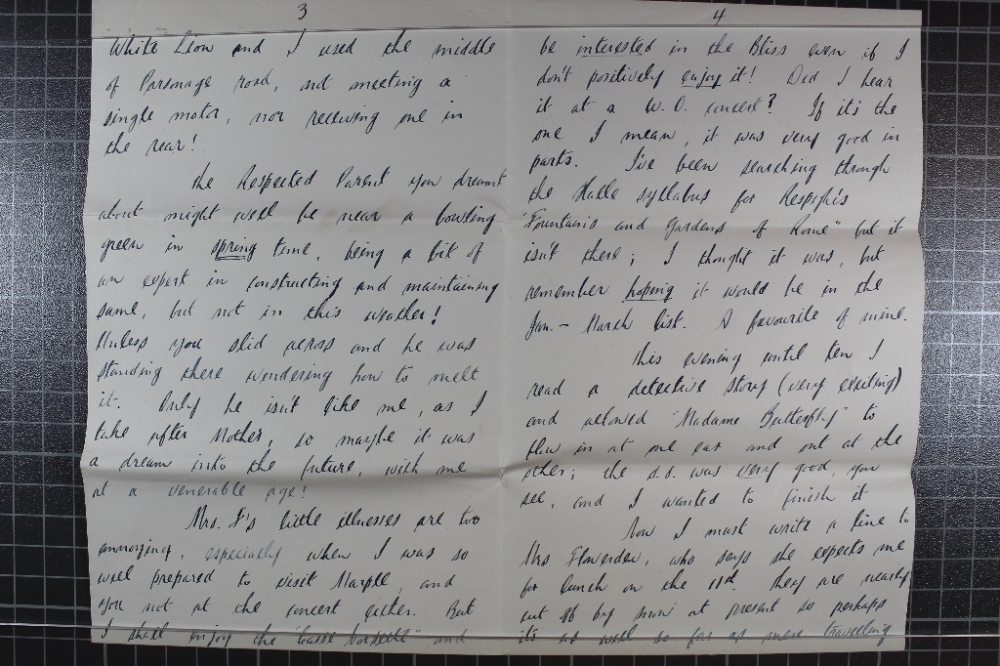 3
White Lion and I used the middle
of Parsonage road, not meeting a
single motor, nor receiving one in
the rear!
The Respected Parent you dreamt
about might well be near a bowling
green in spring time, being a bit of
an expert in constructing and maintaining
same, but not in this weather!
Unless you slid across and he was
standing there wondering how to melt
it. Only he isn't like me, as I
take after Mother, so maybe it was
a dream into the future, with me
at a venerable age!
Mrs. F's little illnesses are too
annoying, especially when I was so
well prepared to visit Marple, and
you not at the concert either. But
I shall enjoy the "Casse Noisette" and
4
be interested in the Bliss even if I
don't positively enjoy it! Did I hear
it at a W.O. concert? If it's the
one I mean, it was very good in
parts. I've been searching through
the Halle syllabus for Respighi's
"Fountains and Gardens of Rome" but it
isn't there; I thought it was, but
remember hoping it would be in the
Jan. - March list. A favourite of mine.
This evening until ten I
read a detective story (very exciting)
and allowed "Madame Butterfly" to
flow in at one ear and out at the
other; the d.s. was very good, you
see, and I wanted to finish it
Now I must write a line to
Mrs Flowerdew, who says she expects me
for lunch on the 11th. They are nearly
cut off by snow at present so perhaps
it's as well so far as mere travelling